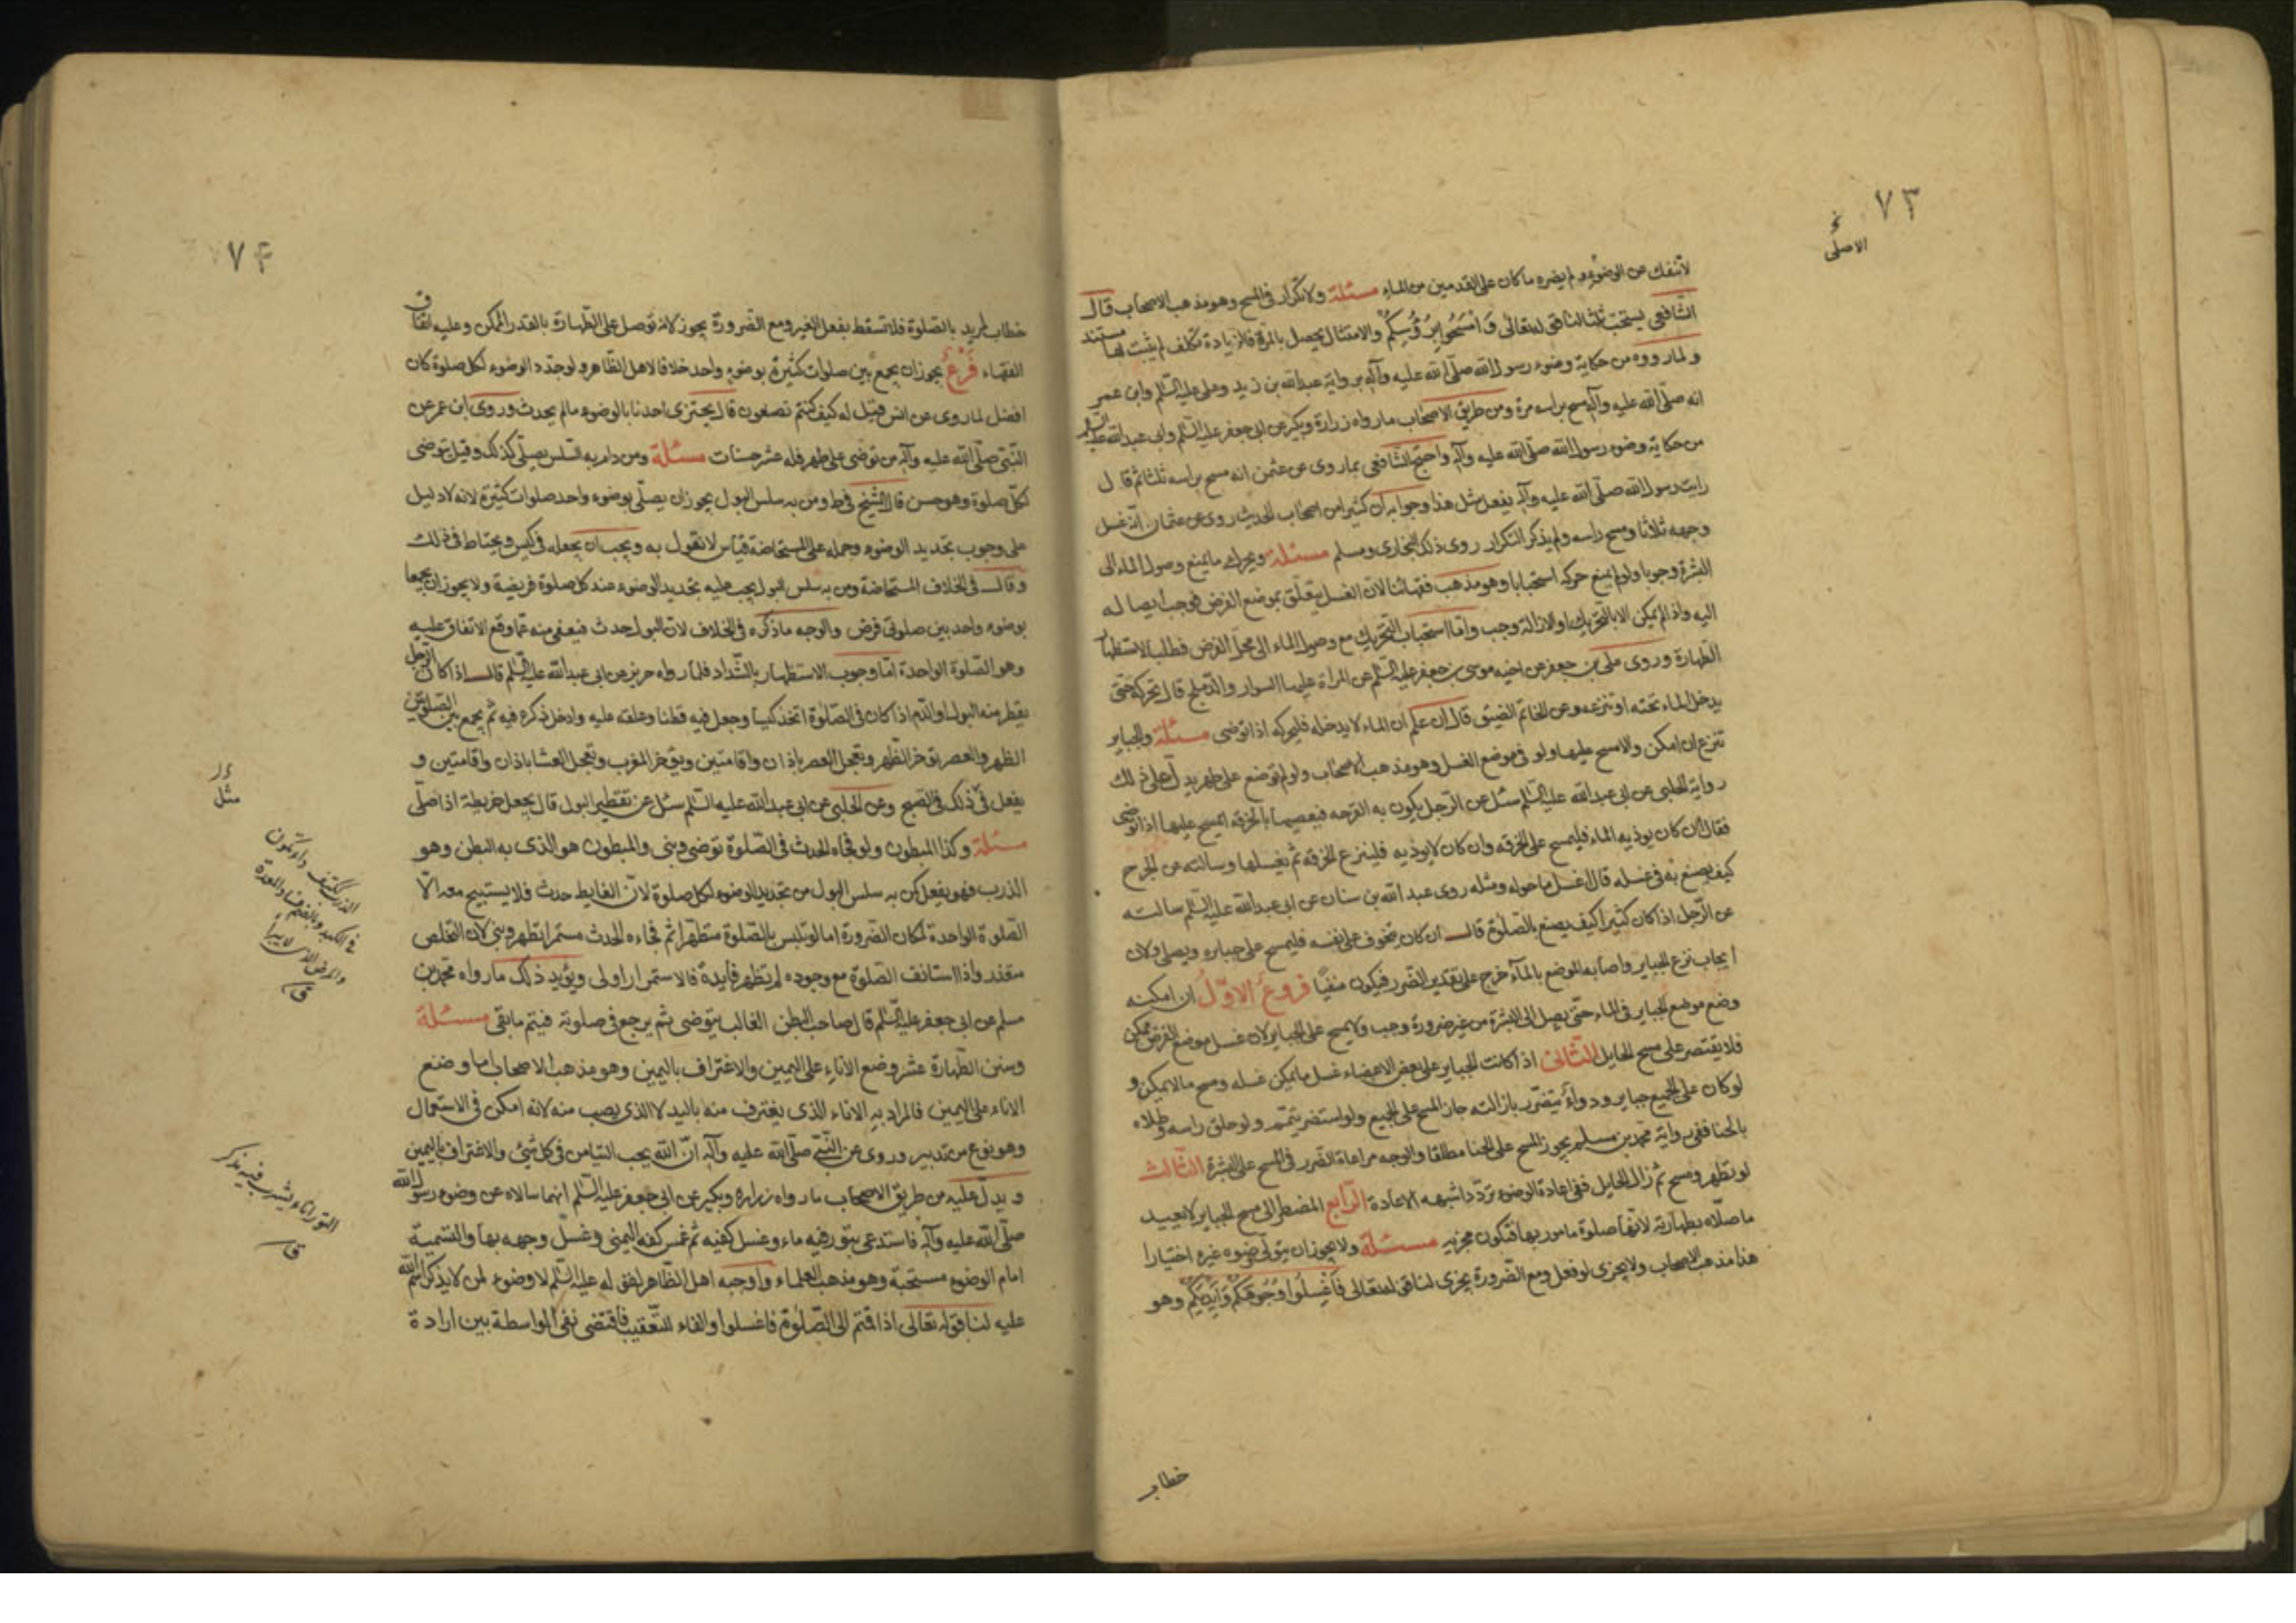 ٧٣
الاصلى
لا تنفك عن الوضوء ولم يضره ما كان على القدمين من الماء مسئلة ولا تكرار فى المسح وهو مذهب الاصحاب قال
الشافعى يستحب ثلثا لنا قوله تعالى وَامْسَحُوا بِرُؤُسِكُمْ والامتثال يحصل بالمرة فالزيادة تكلف لم يثبت لها مستند
ولما رووه من حكاية وضوء رسول الله صلّى الله عليه وآله برواية عبد الله بن زيد وعلى عليه السّلم وابن عمر
انه صلّى الله عليه وآله مسح براسه مرة ومن طريق الاصحاب ما رواه زرارة وبكير عن ابى جعفر عليه السّلم وابى عبد الله عليه السلم
من حكاية وضوء رسول الله صلّى الله عليه وآله واحتج الشافعى بما روى عن عثمن انه مسح براسه ثلثا ثم قال
رايت رسول الله صلّى الله عليه وآله يفعل مثل هذا وجوابه ان كثيرا من اصحاب الحديث روى عن عثمان انّه غسل
وجهه ثلاثا ومسح راسه ولم يذكر التكرار روى ذلك البخارى ومسلم مسئلة ويحرك ما يمنع وصول الماء الى
البشرة وجوبا ولو لم يمنع حركه استحبابا وهو مذهب فقهائنا لان الغسل يتعلّق بموضع الفرض فوجب ايصاله
اليه واذا لم يمكن الا بالتحريك او الازالة وجب وامّا استحباب التحريك مع وصول الماء الى محل الفرض فطلب الاستظهار
الطهارة وروى على بن جعفر عن اخيه موسى بن جعفر عليه السّلم عن المراة عليها السوار والدملج قال تحركه حتى
يدخل الماء تحته او تنزعه وعن الخاتم الضيق قال ان علم ان الماء لا يدخله فليحركه اذا توضى مسئلة والجباير
تنزع ان امكن والا مسح عليها ولو فى موضع الغسل وهو مذهب الاصحاب ولو لم توضع على طهر يدل على ذلك
رواية الحلبى عن ابى عبد الله عليه السّلم سئل عن الرّجل يكون به القرحه فيعصبها بالخرقه ايمسح عليها اذا توضى
فقال ان كان يوذيه الماء فليمسح على الخرقه وان كان لا يوذيه فلينزع الخرقه ثم يغسلها وسالته عن الجرح
كيف يصنع به فى غسله قال اغسل ما حوله ومثله روى عبد الله بن سنان عن ابى عبد الله عليه السّلم سالته
عن الرّجل اذا كان كثيرا كيف يصنع بالصّلوة قال ان كان يتخوف على نفسه فليمسح على جبايره ويصلى ولان
ايجاب نزع الجباير واصابه الموضع بالماء حرج على تقدير الضّرر فيكون منفيّا فروع الاوّل ان امكنه
وضع موضع الجباير فى الماء حتّى يصل الى البشرة من غير ضرورة وجب ولا يمسح على الجباير لان غسل موضع الفرض ممكن
فلا يقتصر على مسح الحايل الثانى اذا كانت الجباير على بعض الاعضاء غسل ما يمكن غسله ومسح ما لا يمكن و
لو كان على الجميع جباير ودواء يتضرّر بازالته جاز المسح على الجميع ولو استضر يتمّم ولو حلق راسه وطلاه
بالحنا ففى رواية محمد بن مسلم يجوز المسح على الحنا مطلقا والوجه مراعاة الضّرر فى المسح على البشرة الثّالث
لو تطهر ومسح ثم زال الحايل ففى اعادة الوضوء تردّد اشبهه الاعادة الرّابع المضطر الى مسح الجباير لا يعيد
ما صلّاه بطهارته لانّها صلوة مامور بها فتكون مجزيه مسئلة ولا يجوز ان يتولّى وضوه غيره اختيارا
هذا مذهب الاصحاب ولا يجزى لو فعل ومع الضّرورة يجزى لنا قوله تعالى فَاغْسِلُوا وُجُوهَكُمْ وَاَيْدِيَكُمْ وهو
خطاب
٧۴
خطاب لمريد بالصّلوة فلا تسقط بفعل الغير ومع الضّرورة يجوز لانه توصل على الطّهارة بالقدر الممكن وعليه اتفاق
الفقهاء فَرْعٌ يجوز ان يجمع بين صلوات كثيرة بوضوء واحد خلافا لاهل الظّاهر ولو جدد الوضوء لكل صلوة كان
افضل لما روى عن انس قيل له كيف كنتم تصنعون قال يجتزى احدنا بالوضوء ما لم يحدث وروى ابن عمر عن
النّبىّ صلّى الله عليه وآله من توضى على طهر فله عشر حسنات مسئلة ومن دام به السلس يصلّى كذلك وقيل يتوضى
لكلّ صلوة وهو حسن قال الشّيخ فى ط ومن به سلس البول يجوز ان يصلّى بوضوء واحد صلوات كثيرة لانه لا دليل
على وجوب تجديد الوضوء وحمله على المستحاضة قياس لا نقول به ويجب ان يجعله فى كيس ويحتاط فى ذلك
وقال فى الخلاف المستحاضة ومن به سلس البول يجب عليه تجديد الوضوء عند كل صلوة فريضة ولا يجوز ان يجمعا
بوضوء واحد بين صلوتى فرض والوجه ما ذكره فى الخلاف لان البول حدث فيعفى منه عما وقع الاتفاق عليه
وهو الصّلوة الواحدة امّا وجوب الاستظهار بالشّداد فلما رواه حريز عن ابى عبد الله عليه السّلم قال اذا كان الرّجل
يقطر منه البول او الدّم اذا كان فى الصّلوة اتخذ كيسا وجعل فيه قطنا وعلقه عليه وادخل ذكره فيه ثم يجمع بين الصّلوتين
الظهر والعصر يؤخر الظّهر ويعجل العصر باذان واقامتين ويؤخر المغرب ويعجل العشا باذان واقامتين و
يفعل فى ذلك فى الصّبح وعن الحلبى عن ابى عبد الله عليه السّلم سئل عن تقطير البول قال يجعل خريطة اذا صلّى
مثل
مسئلة وكذا المبطون ولو فجاه الحدث فى الصّلوة توضى وبنى والمبطون هو الذى به البطن وهو
الذرب فهو يفعل كمن به سلس البول من تجديد الوضوء لكل صلوة لانّ الغايط حدث فلا يستبيح معه الّا
الصّلوة الواحدة لمكان الضّرورة اما لو تلبس بالصّلوة متطهّرا ثم فجاءه الحدث مستمرا تطهر وبنى لان التخلص
متعذر واذا استانف الصّلوة مع وجوده لم تظهر فايدة فالاستمرار اولى ويؤيد ذلك ما رواه محمّد بن
مسلم عن ابى جعفر عليه السّلم قال صاحب البطن الغالب يتوضى ثم يرجع فى صلوته فيتم ما بقى مسئلة
وسنن الطّهارة عشر وضع الاناء على اليمين والاغتراف باليمين وهو مذهب الاصحاب اما وضع
الاناء على اليمين فالمراد به الاناء الذى يغترف منه باليد لا الذى يصب منه لانه امكن فى الاستعمال
وهو نوع من تدبير وروى عن النّبىّ صلّى الله عليه وآله انّ الله يحب التيامن فى كل شىء والاغتراف باليمين
ويدلّ عليه من طريق الاصحاب ما رواه زرارة وبكير عن ابى جعفر عليه السّلم انهما سالاه عن وضوء رسول الله
صلّى الله عليه وآله فاستدعى بتور فيه ماء وغسل كفيه ثم غمس كفه اليمنى وغسل وجهه بها والتسمية
امام الوضوء مستحبة وهو مذهب العلماء واوجبه اهل الظّاهر لقوله عليه السّلم لا وضوء لمن لا يذكر اسم الله
عليه لنا قوله تعالى اذا قمتم الى الصّلوة فاغسلوا والفاء للتّعقيب فاقتضى نفى الواسطة بين ارادة